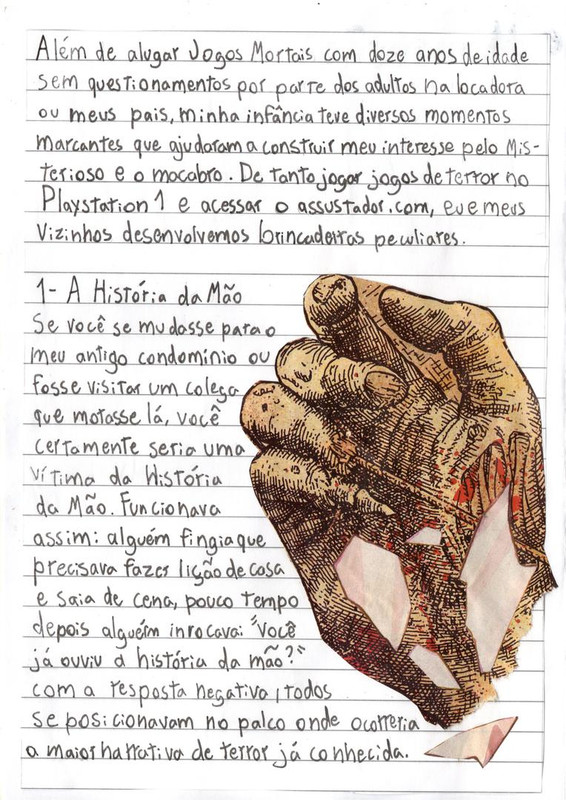 Além de alugar Jogos Mortais com doze anos de idade
sem questionamentos por parte dos adultos na locadora
ou meus pais, minha infância teve diversos momentos
marcantes que ajudaram a construir meu interesse pelo Mis-
terioso e o macabro. De tanto jogar jogos de terror no
Playstation 1 e acessar o assustador.com, eu e meus
vizinhos desenvolvemos brincadeiras peculiares.
1- A História da Mão
Se você se mudasse para o
meu antigo condomínio ou
fosse visitar um colega
que morasse lá, você
certamente seria uma
vítima da História
da Mão. Funcionava
assim: alguém fingia que
precisava fazer lição de casa
e saia de cena, pouco tempo
depois alguém invocava: "você
já ouviu a história da mão?"
com a resposta negativa, todos
se posicionavam no palco onde ocorreria
a maior narrativa de terror já conhecida.